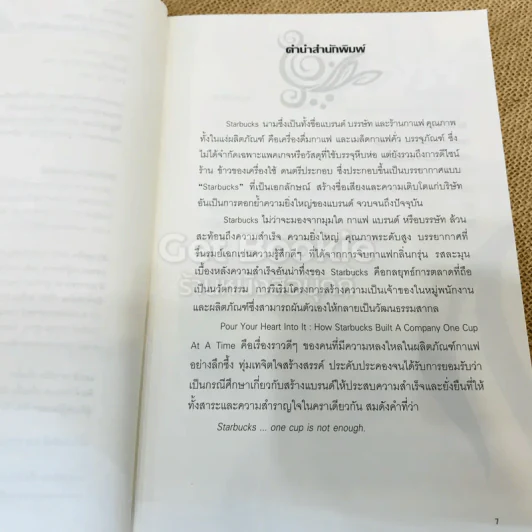 คำนำสำนักพิมพ์
Starbucks นามซึ่งเป็นทั้งชื่อแบรนด์ บริษัท และร้านกาแฟ คุณภาพ
ทั้งในแง่ผลิตภัณฑ์ คือเครื่องดื่มกาแฟ และเมล็ดกาแฟคั่ว บรรจุภัณฑ์ ซึ่ง
ไม่ได้จำกัดเฉพาะแพคเกจหรือวัสดุที่ใช้บรรจุหีบห่อ แต่ยังรวมถึงการดีไซน์
ร้าน ข้าวของเครื่องใช้ ดนตรีประกอบ ซึ่งประกอบขึ้นเป็นบรรยากาศแบบ
“Starbucks” ที่เป็นเอกลักษณ์ สร้างชื่อเสียงและความเติบโตแก่บริษัท
อันเป็นการตอกย้ำความยิ่งใหญ่ของแบรนด์ จวบจนถึงปัจจุบัน
Starbucks ไม่ว่าจะมองจากมุมใด กาแฟ แบรนด์ หรือบริษัท ล้วน
สะท้อนถึงความสำเร็จ ความยิ่งใหญ่ คุณภาพระดับสูง บรรยากาศที่
รื่นรมย์เฉกเช่นความรู้สึกดีๆ ที่ได้จากการจิบกาแฟกลิ่นกรุ่น รสละมุน
เบื้องหลังความสำเร็จอันน่าทึ่งของ Starbucks คือกลยุทธ์การตลาดที่ถือ
เป็นนวัตกรรม การริเริ่มโครงการสร้างความเป็นเจ้าของในหมู่พนักงาน
และผลิตภัณฑ์ซึ่งสามารถผันตัวเองให้กลายเป็นวัฒนธรรมสากล
Pour Your Heart Into It : How Starbucks Built A Company One Cup
At A Time คือเรื่องราวดีๆ ของคนที่มีความหลงใหลในผลิตภัณฑ์กาแฟ
อย่างลึกซึ้ง ทุ่มเทจิตใจสร้างสรรค์ ประคับประคองจนได้รับการยอมรับว่า
เป็นกรณีศึกษาเกี่ยวกับสร้างแบรนด์ให้ประสบความสำเร็จและยั่งยืนที่ให้
ทั้งสาระและความสำราญใจในคราเดียวกัน สมดังคำที่ว่า
Starbucks ... one cup is not enough.
7